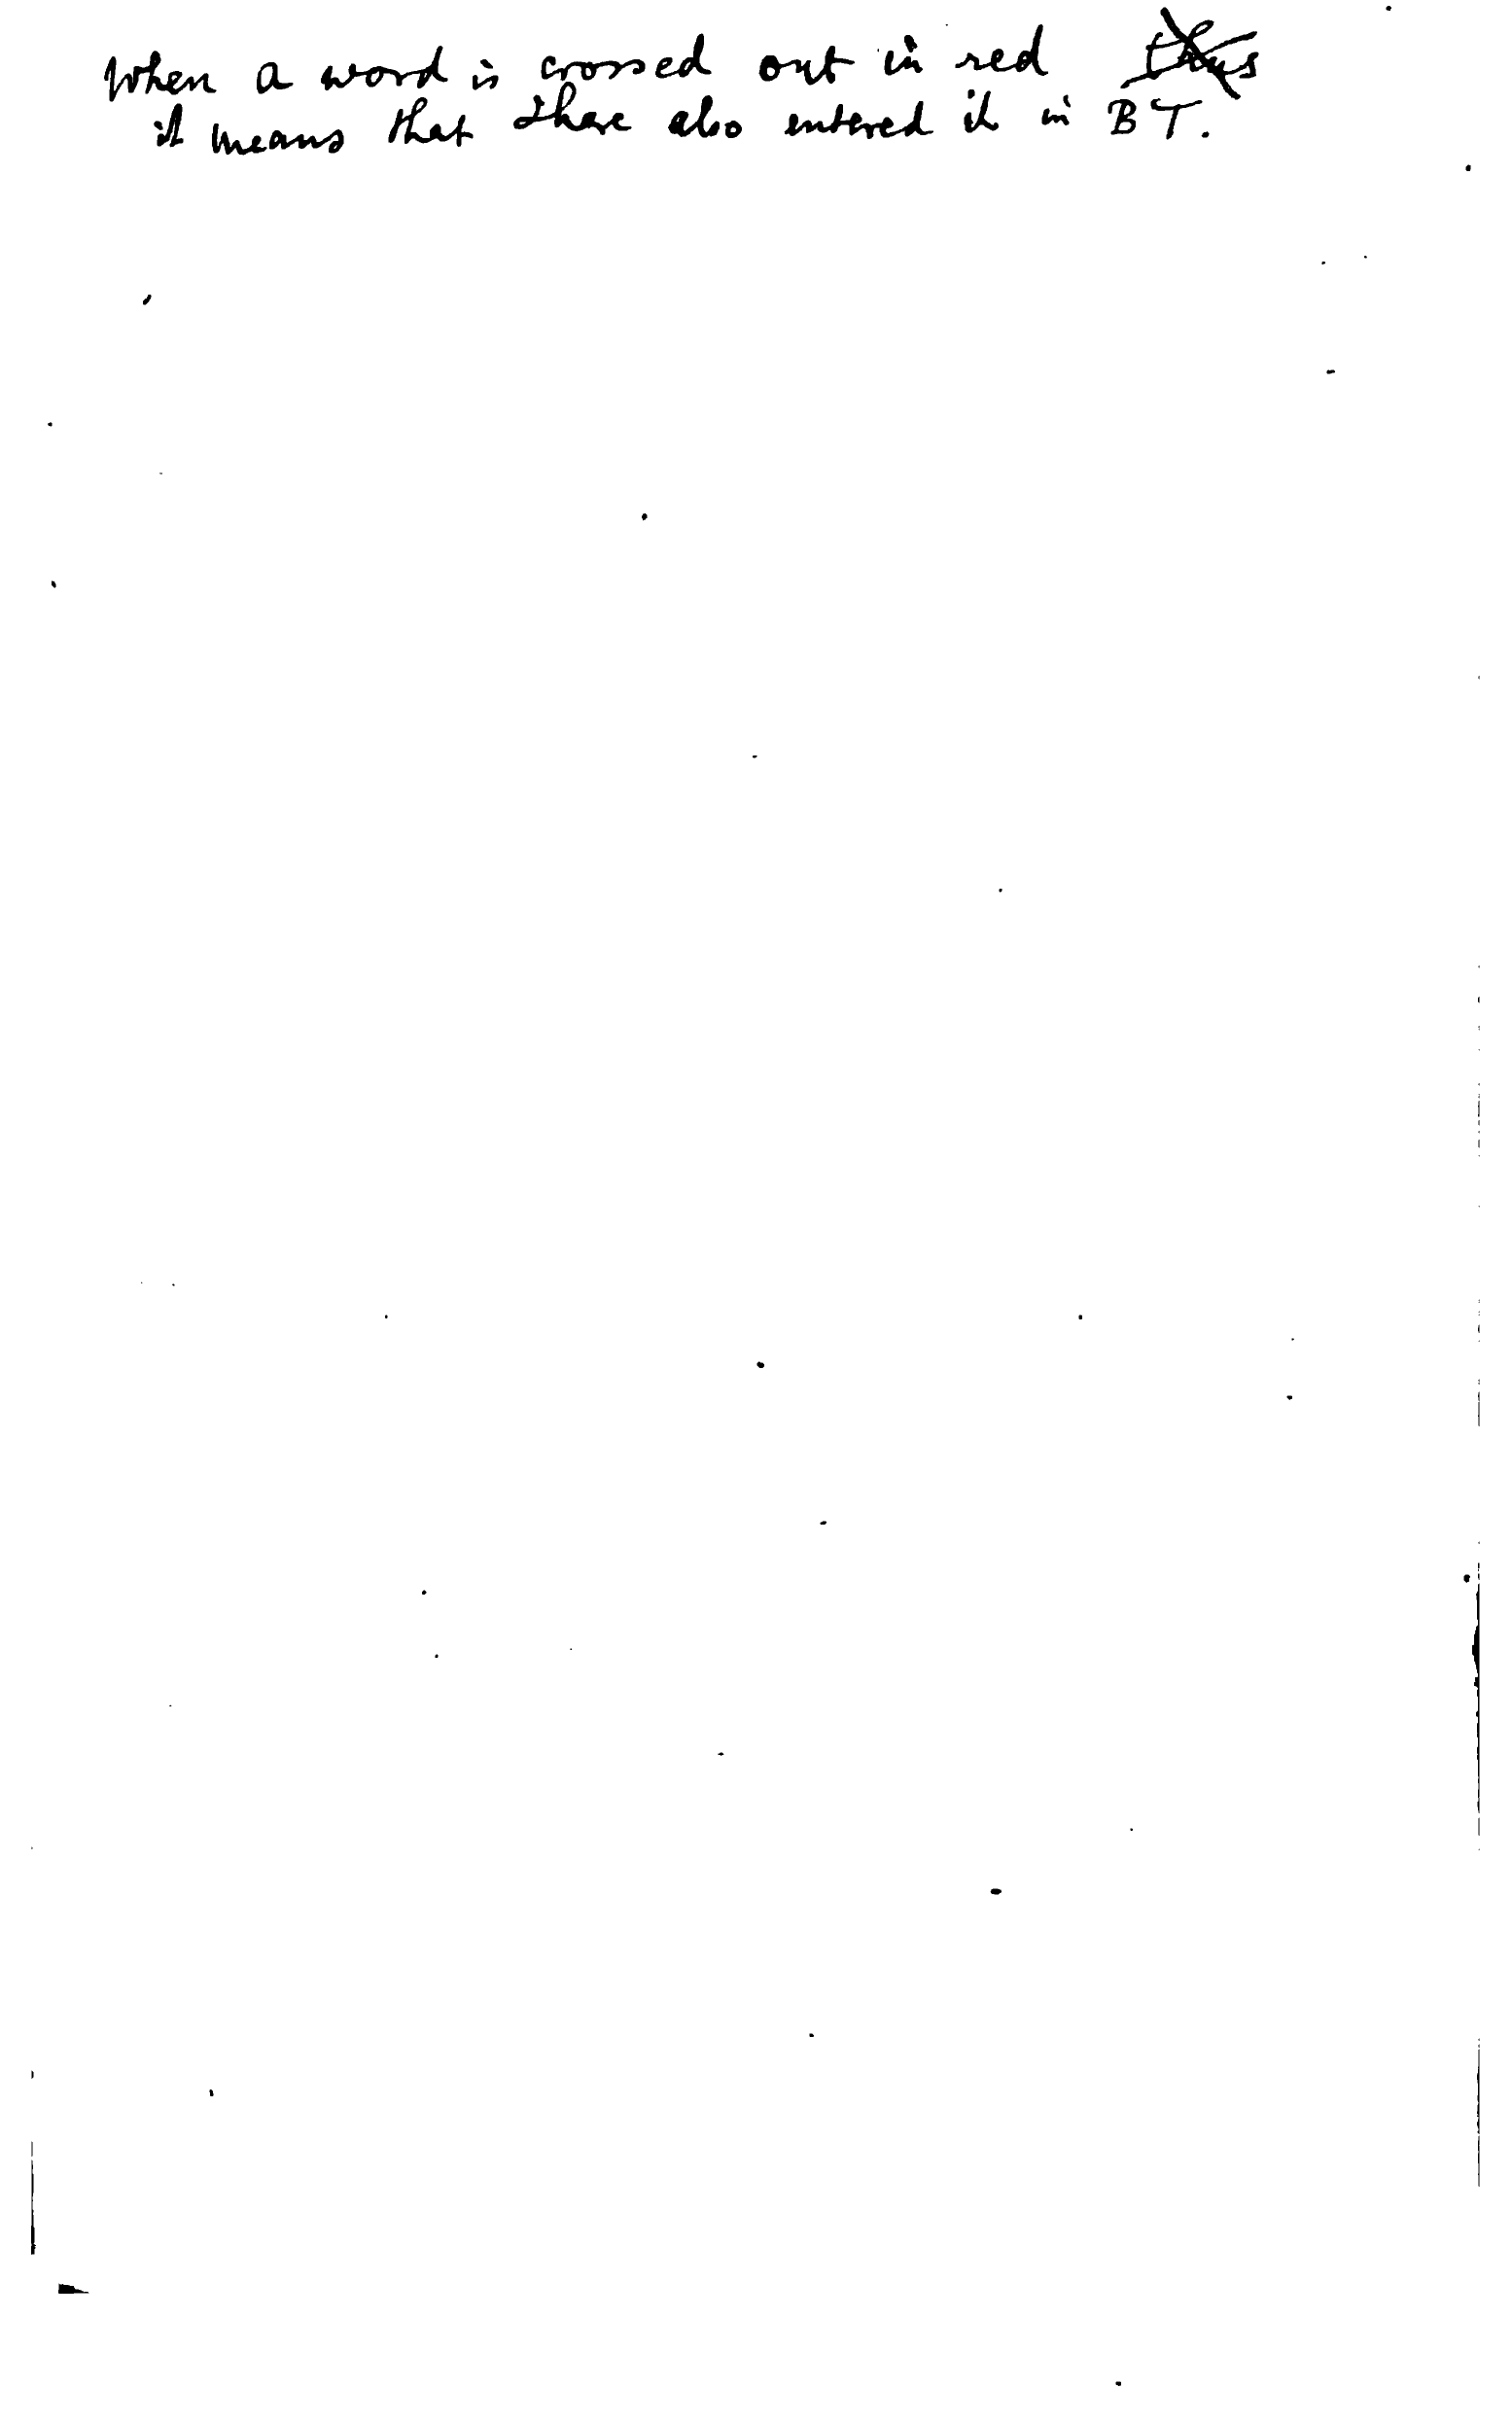 When a word is crossed out in red thus
it means that I have also entered it in BT.